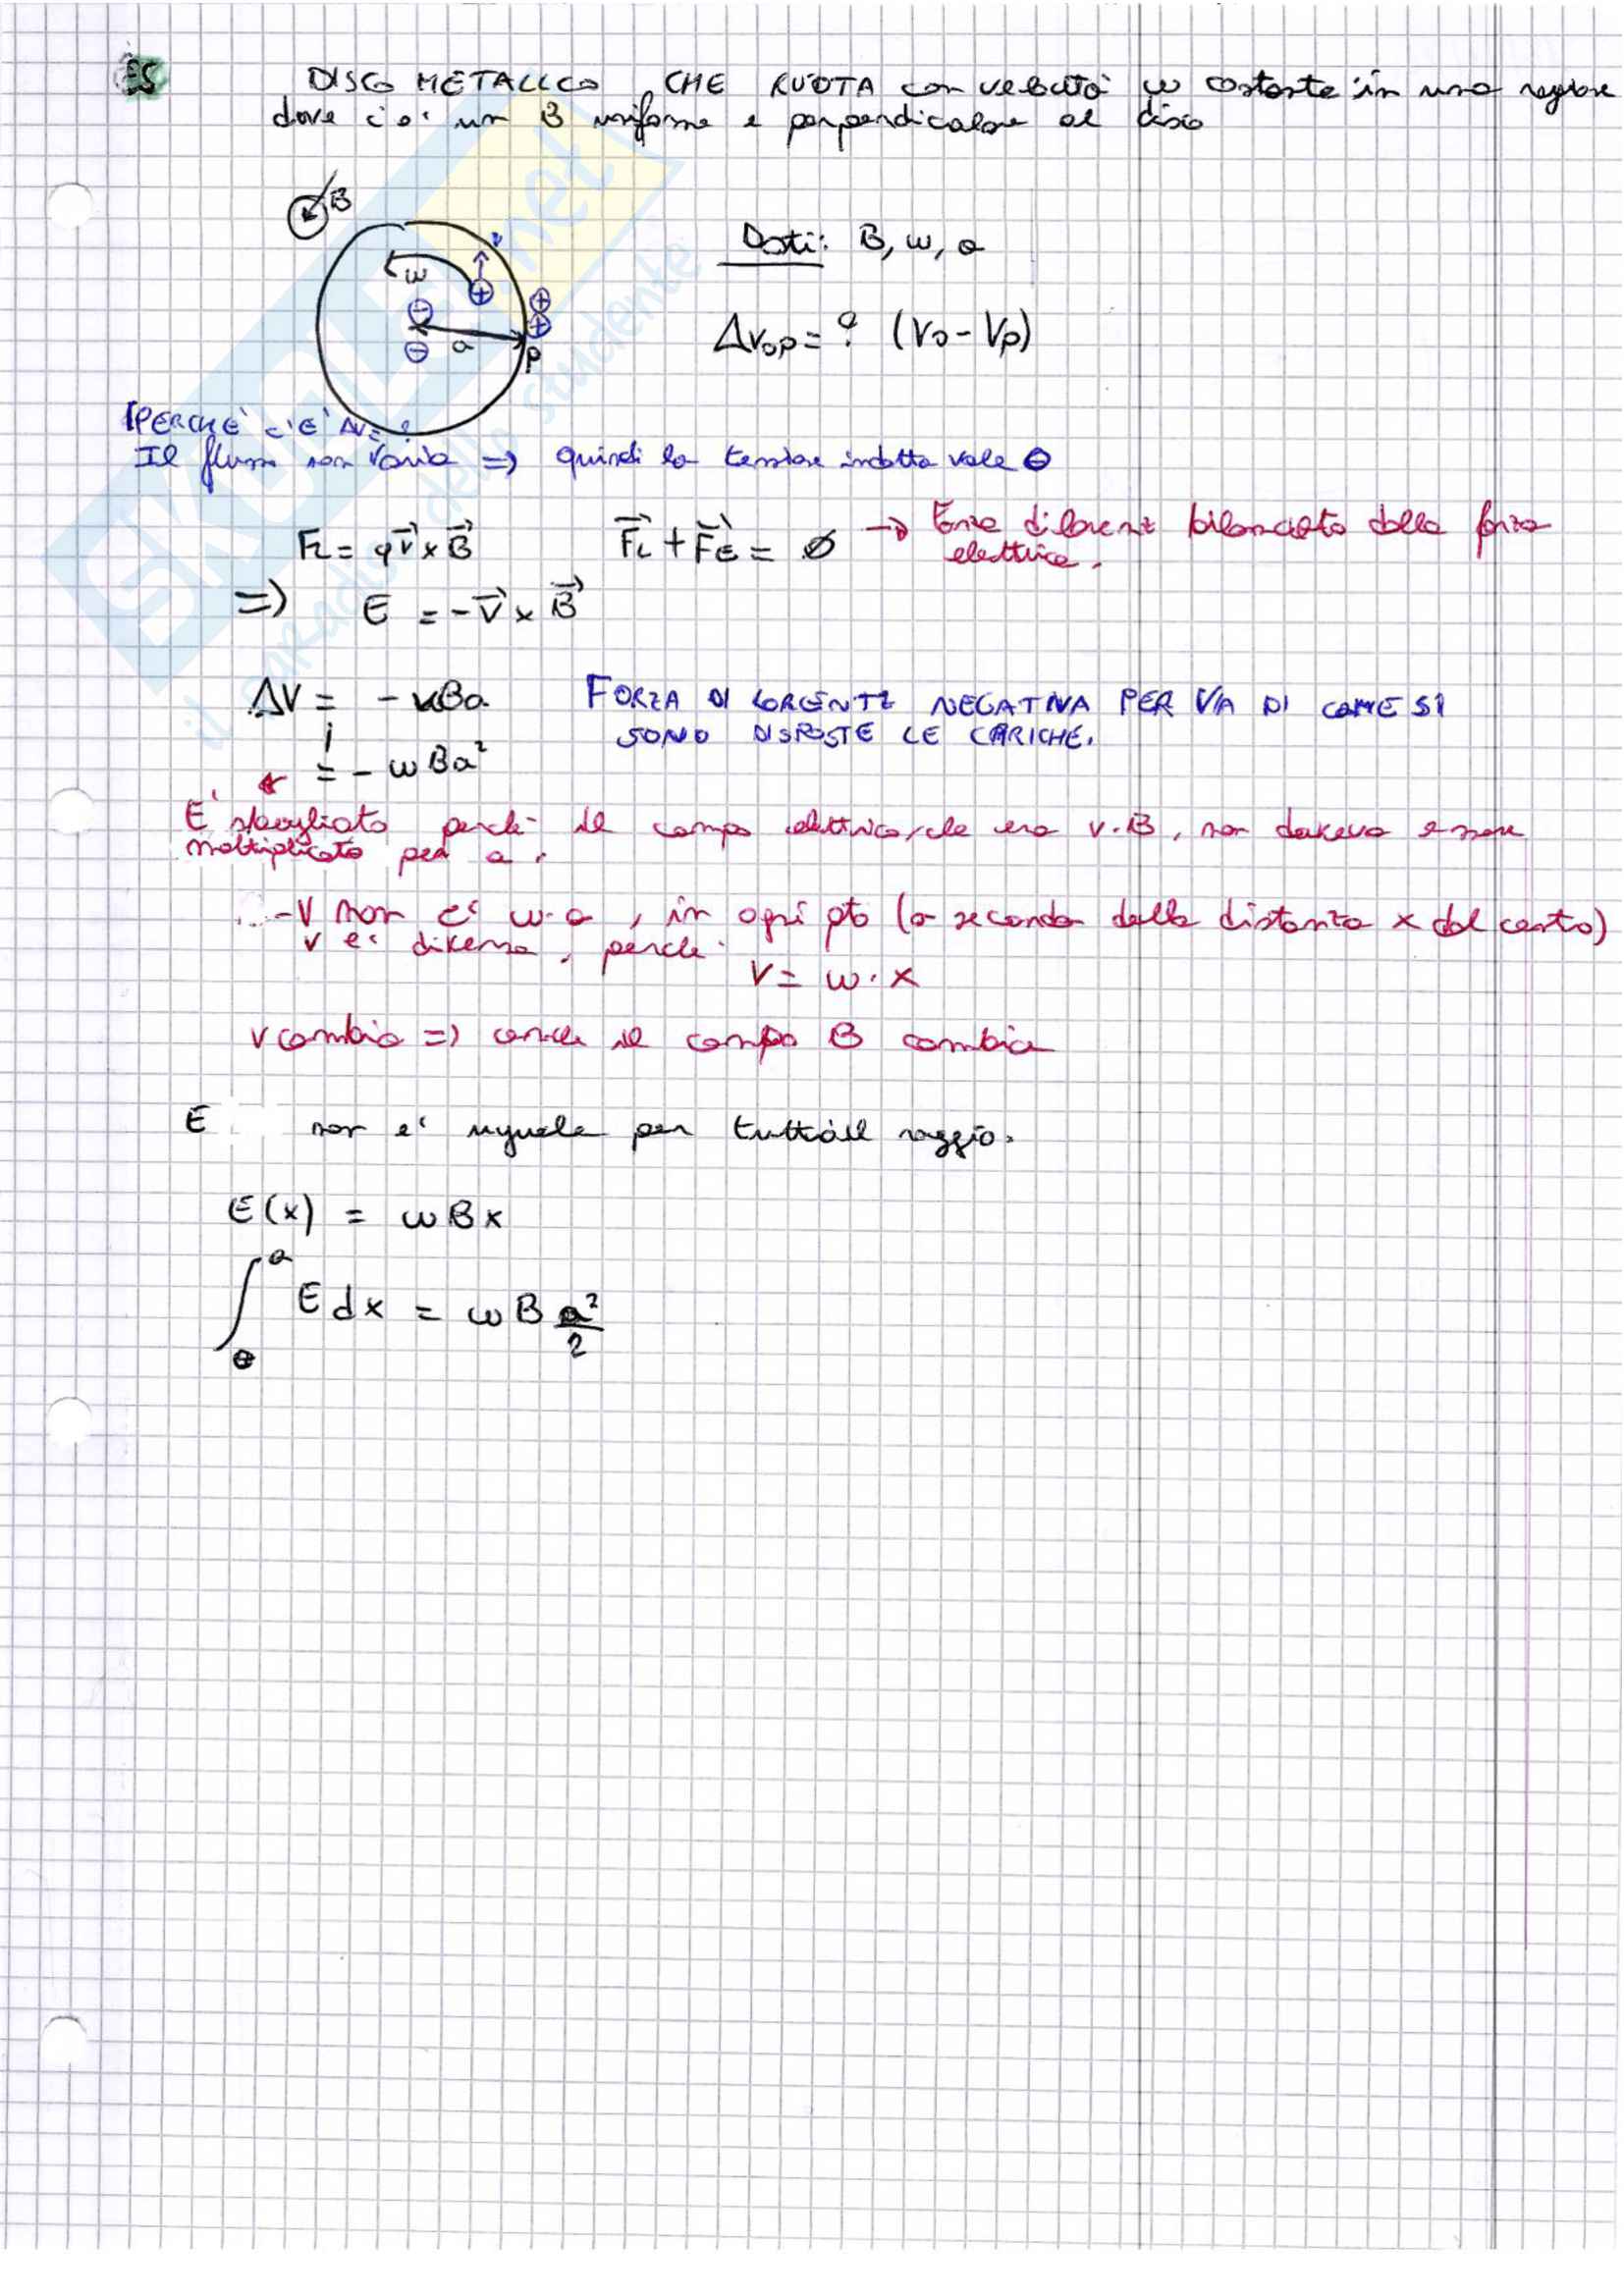 ES DISCO METALLICO CHE RUOTA con velocità ω costante in una regione
dove c'è un B uniforme e perpendicolare al disco
B
ω
v
a
P
Dati: B, ω, a
ΔV₀p = ? (V₀ - Vp)
PERCHE' C'E' ΔV = ?
Il flusso non varia => quindi la tensione indotta vale 0
FL = qv⃗ x B⃗
F⃗L + F⃗E = ∅ → Forza di Lorentz bilanciata dalla forza
elettrica.
=> E = -v⃗ x B⃗
ΔV = - vBa
= - ωBa²
FORZA DI LORENTZ NEGATIVA PER VIA DI COME SI
SONO DISPOSTE LE CARICHE.
E' sbagliato perchè il campo elettrico, che era v·B, non doveva essere
moltiplicato per a.
- V non è ω·a, in ogni pto (a seconda della distanza x dal centro)
v è diversa, perchè
V = ω·x
v cambia => anche il campo B cambia
E non è uguale per tutto il raggio.
E(x) = ωBx
∫₀ᵃ E dx = ωB a²/2
SKUOLA.net
il paradiso dello studente